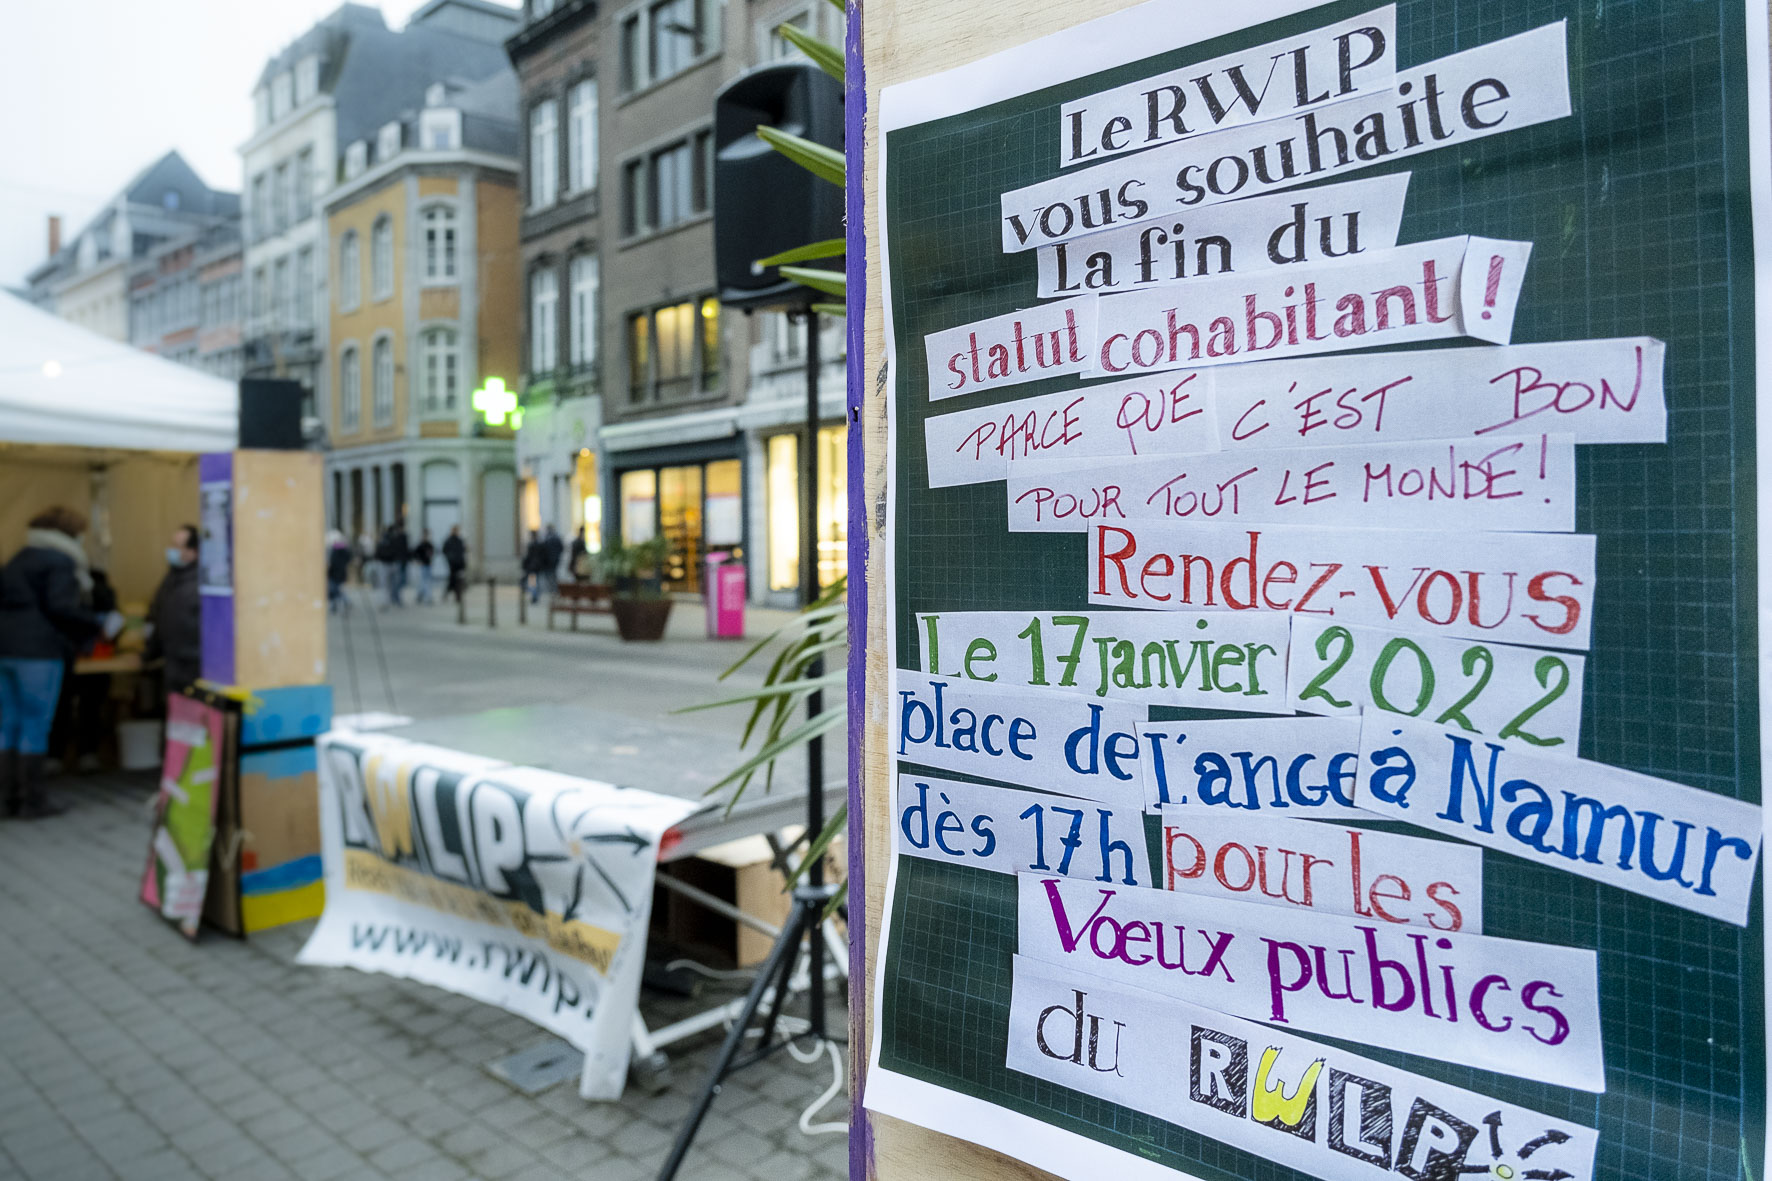 Le RWLP
vous souhaite
La fin du
statut cohabitant !
PARCE QUE C'EST BON
POUR TOUT LE MONDE !
Rendez-vous
Le 17 janvier 2022
place de L'ange à Namur
dès 17h pour les
Vœux publics
du RWLP
RWLP
www.rwlp.